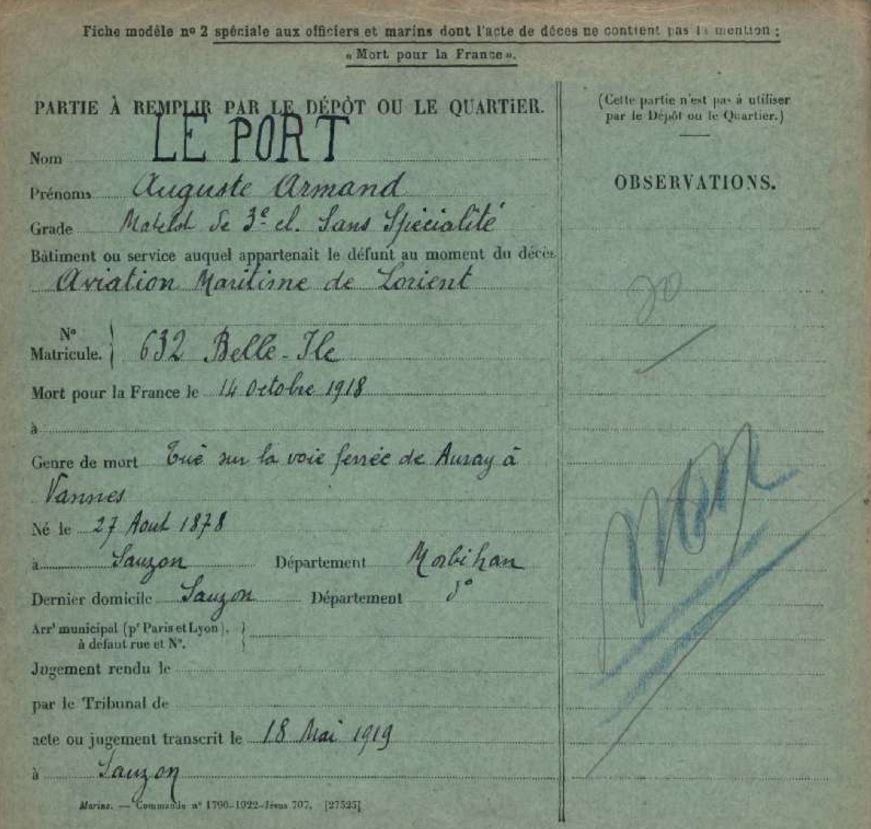 Fiche modèle nº 2 spéciale aux officiers et marins dont l'acte de décès ne contient pas la mention :
« Mort pour la France ».
PARTIE À REMPLIR PAR LE DÉPÔT OU LE QUARTIER.
Nom LE PORT
Prénoms Auguste Armand
Grade Matelot de 3e cl. Sans Spécialité
Bâtiment ou service auquel appartenait le défunt au moment du décès
Aviation Maritime de Lorient
Nº Matricule. 632 Belle-Ile
Mort pour la France le 14 Octobre 1918
à
Genre de mort Tué sur la voie ferrée de Auray à
Vannes
Né le 27 Aout 1878
à Sauzon Département Morbihan
Dernier domicile Sauzon Département do
Arrt municipal (pr Paris et Lyon),
à défaut rue et Nº.
Jugement rendu le
par le Tribunal de
acte ou jugement transcrit le 18 Mai 1919
à Sauzon
Marine. — Commande nº 1790-1922-Jésus 707. [27525]
(Cette partie n'est pas à utiliser
par le Dépôt ou le Quartier.)
OBSERVATIONS.
Non